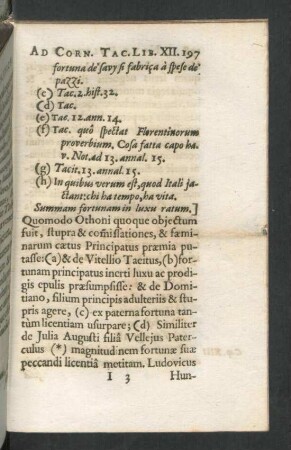 AD CORN. TAC. LIB. XII. 197
fortuna de' savy si fabriça à spese de'
pazzi.
(c) Tac. 2. hist. 32.
(d) Tac.
(e) Tac. 12. ann. 14.
(f) Tac. quò spectat Florentinorum
proverbium. Cosa fatta capo ha.
v. Not. ad 13. annal. 15.
(g) Tacit. 13. annal. 15.
(h) In quibus verum est, quod Itali ja-
ctant: chi ha tempo, ha vita.
Summam fortunam in luxu ratum.]
Quomodo Othoni quoque objectum
fuit, stupra & comissationes, & fæmi-
narum cætus Principatus præmia pu-
tasse: (a) & de Vitellio Tacitus, (b) for-
tunam principatus inerti luxu ac prodi-
gis epulis præsumpsisse: & de Domi-
tiano, filium principis adulteriis & stu-
pris agere, (c) ex paterna fortuna tan-
tùm licentiam usurpare; (d) Similiter
de Julia Augusti filiâ Vellejus Pater-
culus (*) magnitudinem fortunæ suæ
peccandi licentiâ metitam. Ludovicus
I 3 Hun-